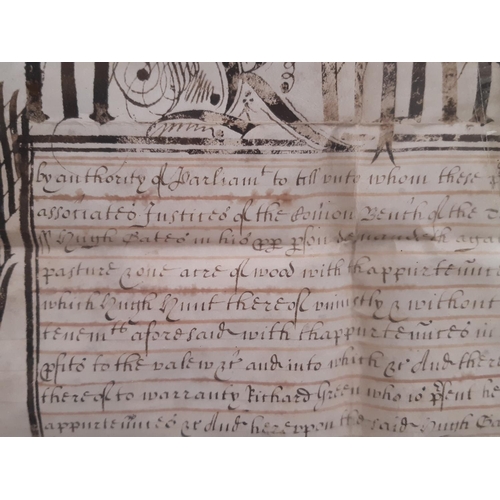 by authority of Parliamt to all unto whom these p
associates Justices of the Com̄on Bench of the
ss Hugh Gates in his pp p̱son demandeth aga
pasture & one acre of wood with thappurtenn̄c
which Hugh Hunt thereof uniustly & without
tenemts aforesaid with thappurtenn̄ces in
p̱fits to the valew &c and into which &c And there
thereof to warranty Richard Green who is p̱sent he
appurtenn̄ces &c And hereupon the said Hugh Ga